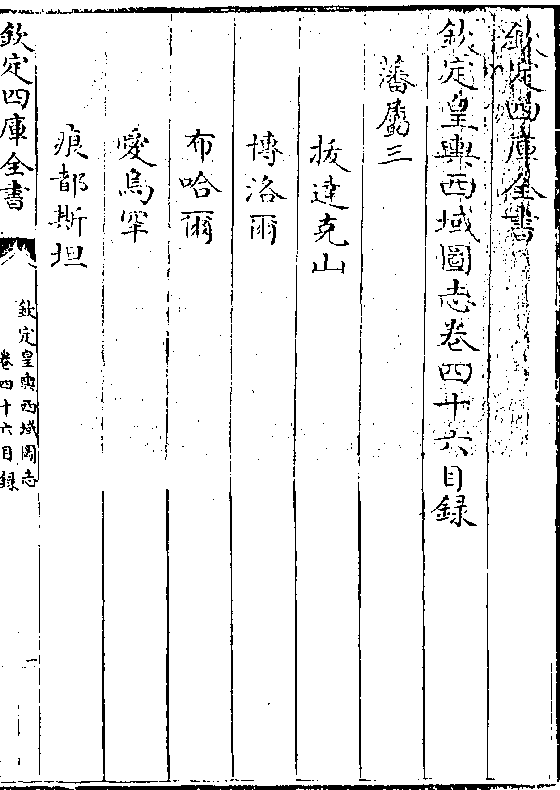 欽定四庫全書
欽定皇輿西域圖志卷四十六目録
藩屬三
拔達克山
博洛爾
布哈爾
愛烏罕
痕都斯坦
欽定四庫全書
欽定皇輿西域圖志
卷四十六目録
一